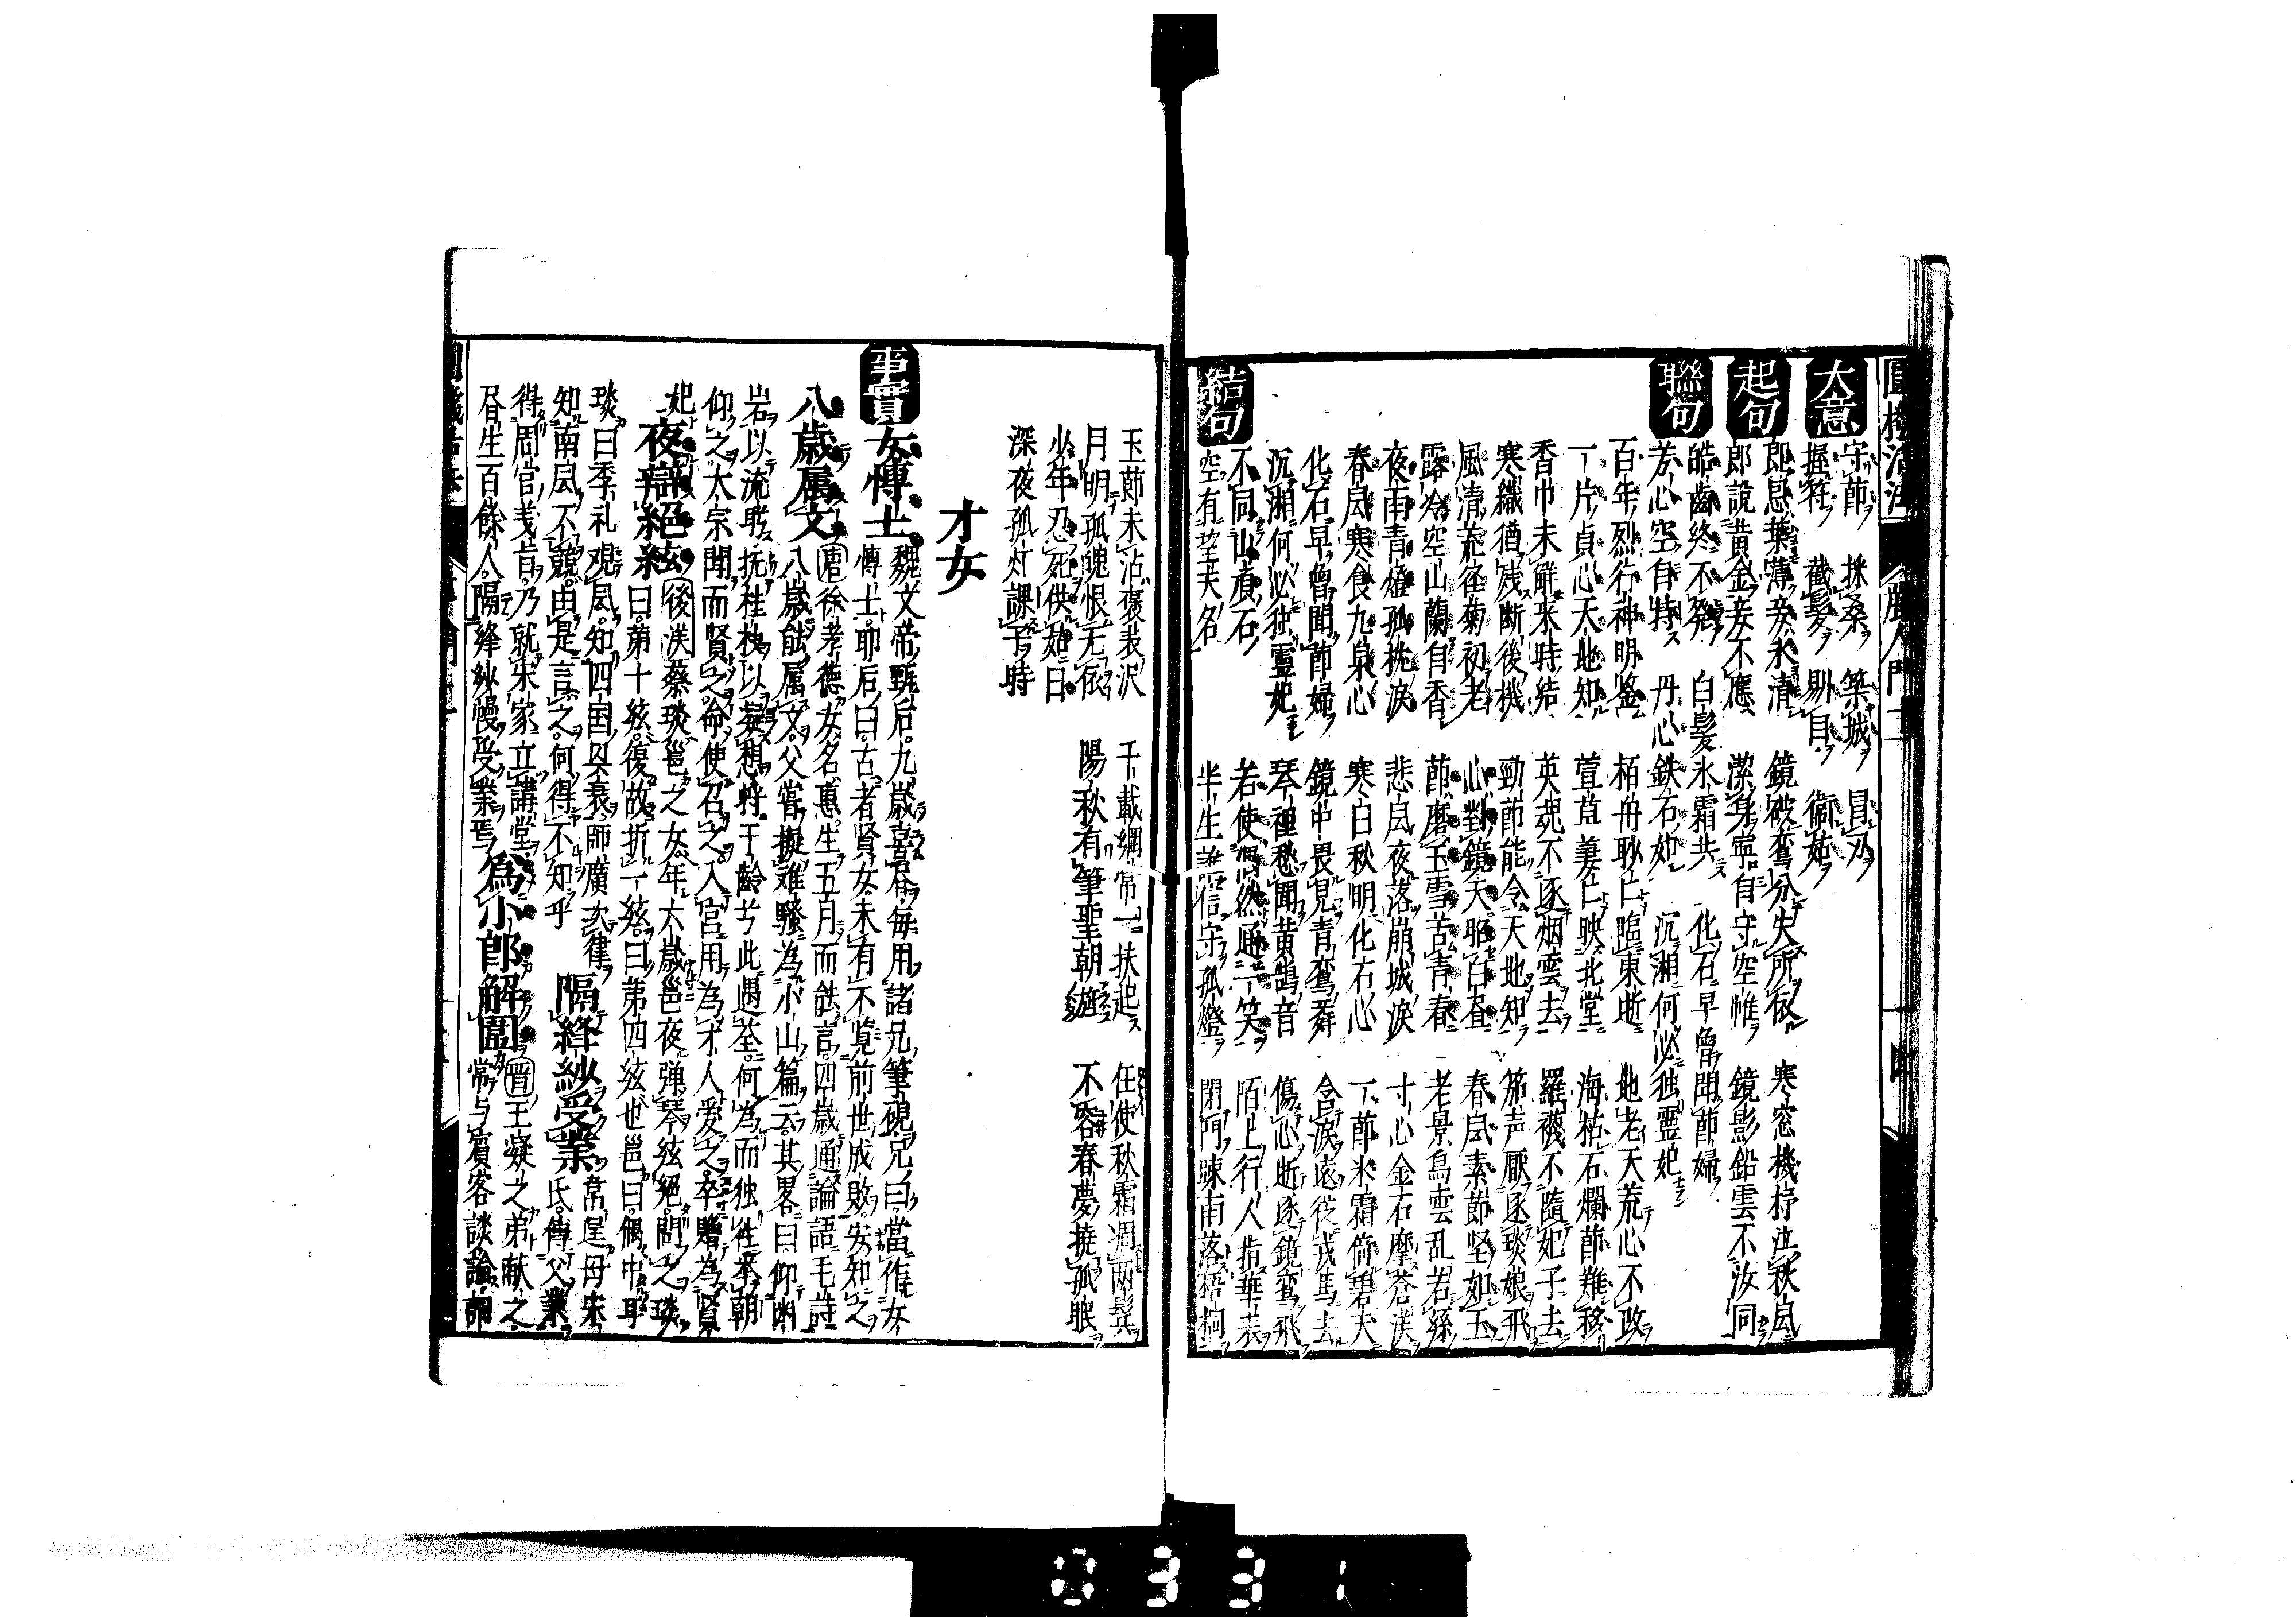 大意
守節 採桑 築城 冒刃
握符 截髮 剔目
起句
郎恩葉薄妾氷清 鏡破鸞分失所依 寒窓機杼泣秋風
郎說黃金妾不應 潔身寧自守空帷 鏡影鉛雲不汝同
聯句
皓齒終不發 白髮氷霜共 化石早曾聞節婦
芳心空自特 丹心鉄石如 沉湘何必独靈妃
百年烈行神明鉴 栢舟耿亡臨東逝 地老天荒心不改
一片貞心天地知 萱草萋亡映北堂 海枯石爛節難移
香巾未觧来時結 英魂不逐烟雲去 羅襪不隨妃子去
寒織猶残断後機 勁節能令天地知 笳声厭逐琰娘飛
風清荒径菊初老 心對鏡天昭白日 春風素節坚如玉
露冷空山蘭自香 節磨玉雪苦青春 老景烏雲乱若絲
夜雨青燈孤枕淚 悲風夜落崩城淚 寸心金石摩苍漢
春風寒食九泉心 寒白秋明化石心 一節氷霜篩碧天
化石早曾聞節婦 鏡中畏見青鸞舞 含淚遠従戎馬去
沉湘何必独靈妃 琴裡愁聞黃鵠音 傷心逝逐鏡鸞飛
結句
不同山頂石 若使偶然通一笑 陌上行人指華表
空有望夫名 半生誰信守孤燈 閑門踈雨落梧桐
玉節未沾褒表沢 千載綱常一扶起 任使秋霜凋両鬂
月明孤魄恨无依 陽秋有筆聖朝 不容春夢擾孤眠
少年忍死供姑日
深夜孤灯課子時
才女
事實
女博士 魏文帝甄后九歳喜書每用諸兄筆硯兄曰當作女
博士耶后曰古者賢女未有不覧前世成敗安知之
八歳属文 唐徐孝德女名惠生五月而能言四歳通論語毛詩
八歳能属文父嘗擬離騷為小山篇云其畧曰仰幽
岩以流盼抚桂枝以凝想将千齡兮此遇荃何為而独往来朝
仰之太宗聞而賢之命使召之入宮用為才人愛之卒贈為賢
妃 夜辯絕絃 後漢蔡琰邕之女年六歳邕夜弾琴絃絕問之琰
曰第十絃復故折一絃曰第四絃也邕曰偶中耳
琰曰季礼觀風知四国㒷衰師廣次律 隔絳紗受業 常逞母宋
知南風不競由是言之何得不知乎 氏傳父業
得周官義肯乃就宋家立講堂 為小郎解圍 晋王凝之弟献之
昼生百餘人隔絳紗幔受業焉 常与賓客談論